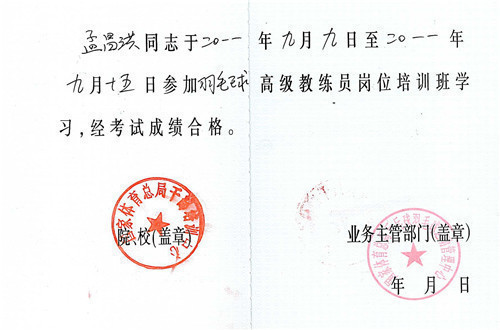 孟昌洪同志于二〇一一年九月九日至二〇一一年
九月十五日参加羽毛球高级教练员岗位培训班学
习,经考试成绩合格。
国家体育总局干部培训中心
院校(盖章)
业务主管部门(盖章)
年 月 日